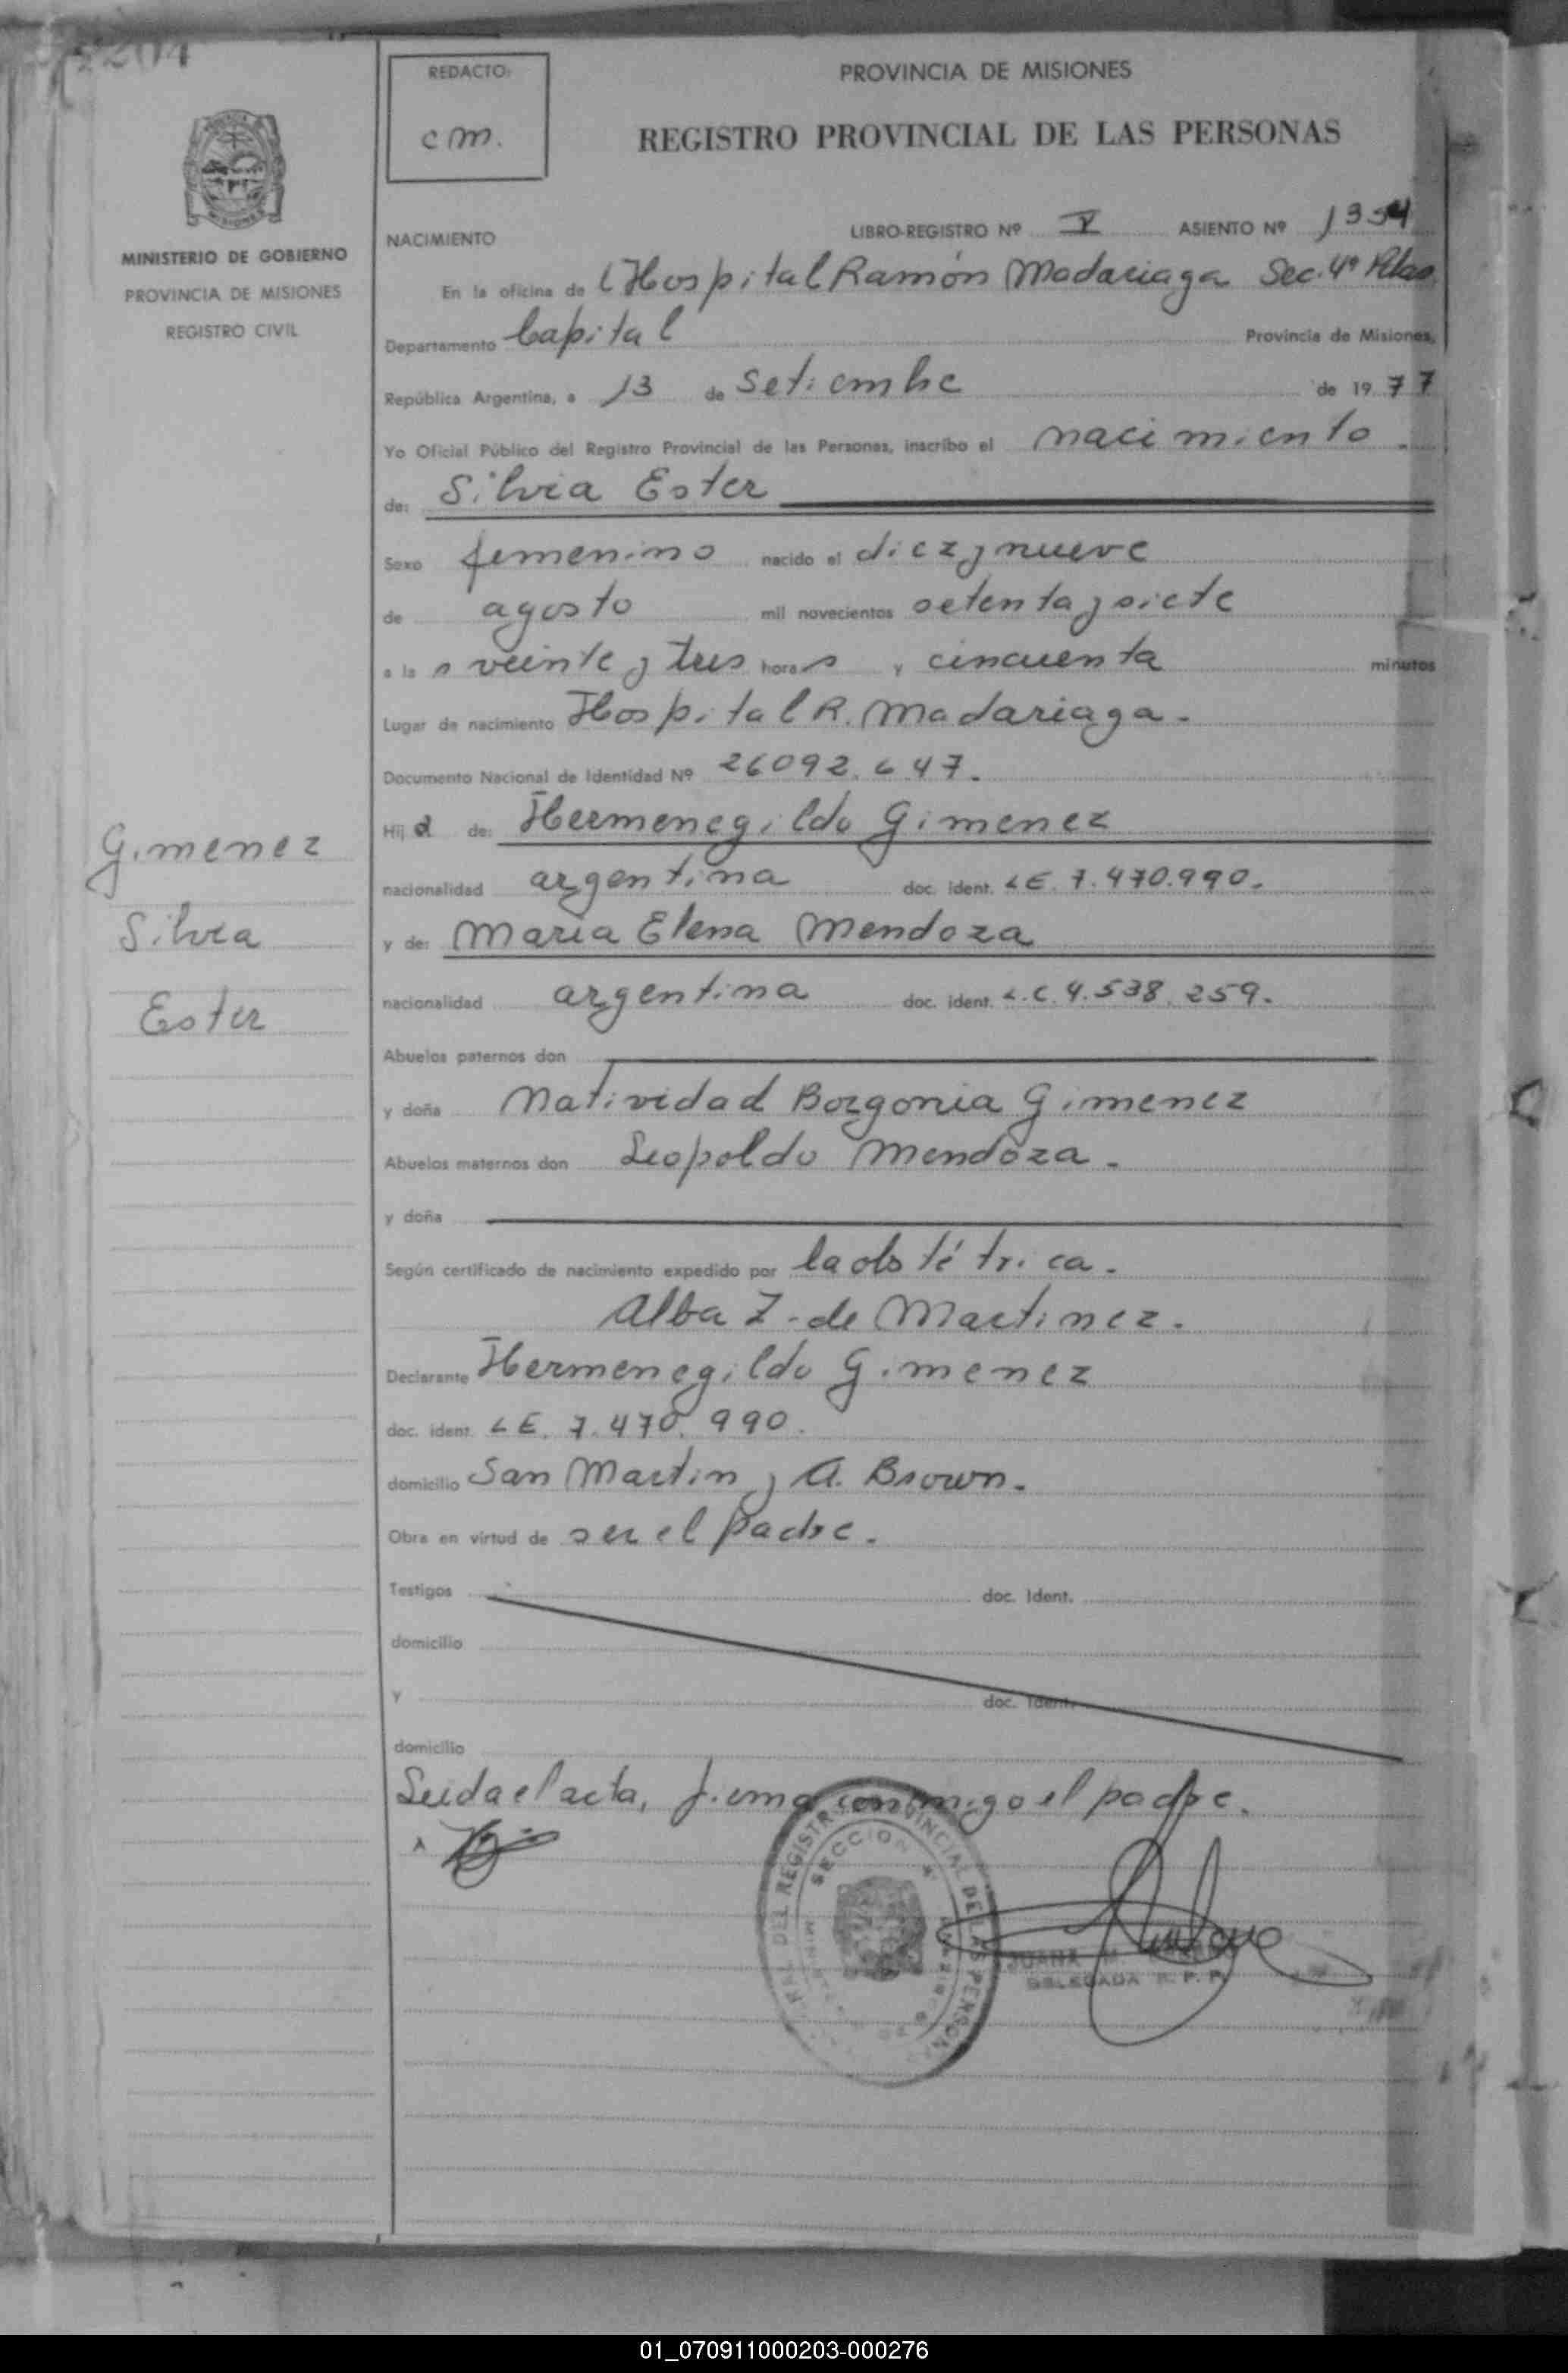 REDACTO:
c m.
PROVINCIA DE MISIONES
REGISTRO PROVINCIAL DE LAS PERSONAS
MINISTERIO DE GOBIERNO
PROVINCIA DE MISIONES
REGISTRO CIVIL
NACIMIENTO LIBRO-REGISTRO Nº V ASIENTO Nº 1354
En la oficina de Hospital Ramón Madariaga Sec. 4ª Pdas.
Departamento Capital Provincia de Misiones,
República Argentina, a 13 de Setiembre de 1977
Yo Oficial Público del Registro Provincial de las Personas, inscribo el nacimiento.
de: Silvia Ester
Sexo femenino nacido el diez y nueve
de agosto mil novecientos setenta y siete
a la s veinte y tres hora s y cincuenta minutos
Lugar de nacimiento Hospital R. Madariaga.
Documento Nacional de Identidad Nº 26092.647.
Hij a de: Hermenegildo Gimenez
nacionalidad argentina doc. ident. LE. 7.470.990.
y de: Maria Elena Mendoza
nacionalidad argentina doc. ident. L.C. 4.538.259.
Abuelos paternos don
y doña Natividad Borgonia Gimenez
Abuelos maternos don Leopoldo Mendoza.
y doña
Según certificado de nacimiento expedido por la obstétrica.
Alba Z. de Martinez.
Declarante Hermenegildo Gimenez
doc. ident. LE. 7.470.990.
domicilio San Martin y A. Brown.
Obra en virtud de ser el padre.
Testigos doc. Ident.
domicilio
y doc. Ident.
domicilio
Leida el acta, firma conmigo el padre.
Gimenez
Silvia
Ester
SECCION 4ª
JUANA M.
DELEGADA R. P. P.
01_070911000203-000276